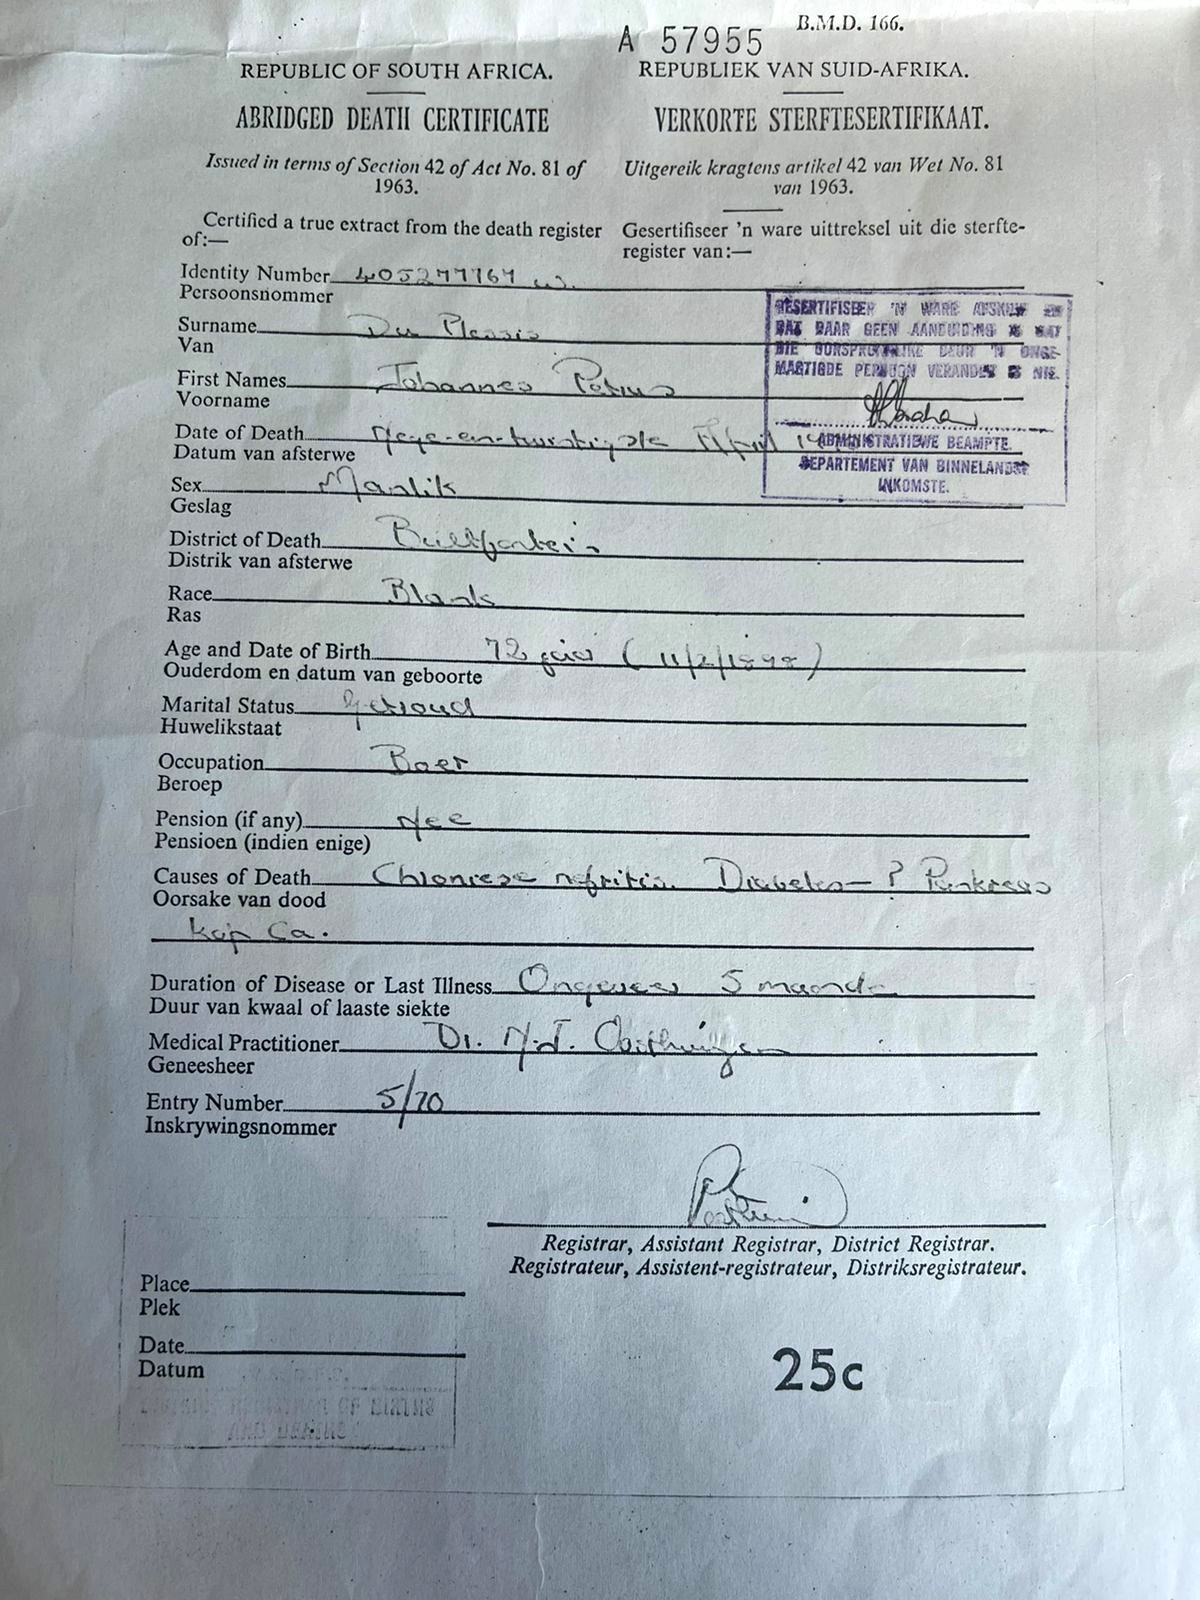 A 57955 B.M.D. 166.
REPUBLIC OF SOUTH AFRICA.
ABRIDGED DEATH CERTIFICATE
Issued in terms of Section 42 of Act No. 81 of
1963.
Certified a true extract from the death register
of:—
REPUBLIEK VAN SUID-AFRIKA.
VERKORTE STERFTESERTIFIKAAT.
Uitgereik kragtens artikel 42 van Wet No. 81
van 1963.
Gesertifiseer 'n ware uittreksel uit die sterfte-
register van:—
Identity Number
Persoonsnommer
Surname Du Plessis
Van
First Names Johannes Petrus
Voorname
Date of Death Nege-en-twintigste April
Datum van afsterwe
Sex Manlik
Geslag
District of Death Bultfontein
Distrik van afsterwe
Race Blank
Ras
Age and Date of Birth 72 jaar (11/2/1898)
Ouderdom en datum van geboorte
Marital Status Getroud
Huwelikstaat
Occupation Boer
Beroep
Pension (if any) Nee
Pensioen (indien enige)
Causes of Death Chroniese nefritis. Diabetes — ? Pankreas
Oorsake van dood
kop Ca.
Duration of Disease or Last Illness Ongeveer 5 maande
Duur van kwaal of laaste siekte
Medical Practitioner Dr. N.J. Oosthuizen
Geneesheer
Entry Number 5/70
Inskrywingsnommer
GESERTIFISEER 'N WARE AFSKRIF EN
DAT DAAR GEEN AANDUIDING IS DAT
DIE OORSPRONKLIKE DEUR 'N ONGE-
MAGTIGDE PERSOON VERANDER IS NIE.
ADMINISTRATIEWE BEAMPTE.
DEPARTEMENT VAN BINNELANDSE
INKOMSTE.
Registrar, Assistant Registrar, District Registrar.
Registrateur, Assistent-registrateur, Distriksregistrateur.
Place
Plek
Date
Datum
25c